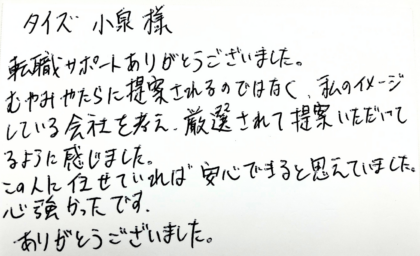 タイズ 小泉 様
転職サポートありがとうございました。
むやみやたらに提案されるのではなく、私のイメージ
している会社を考え、厳選されて提案いただいて
るように感じました。
この人に任せていれば安心できると思えていました。
心強かったです.
ありがとうございました。